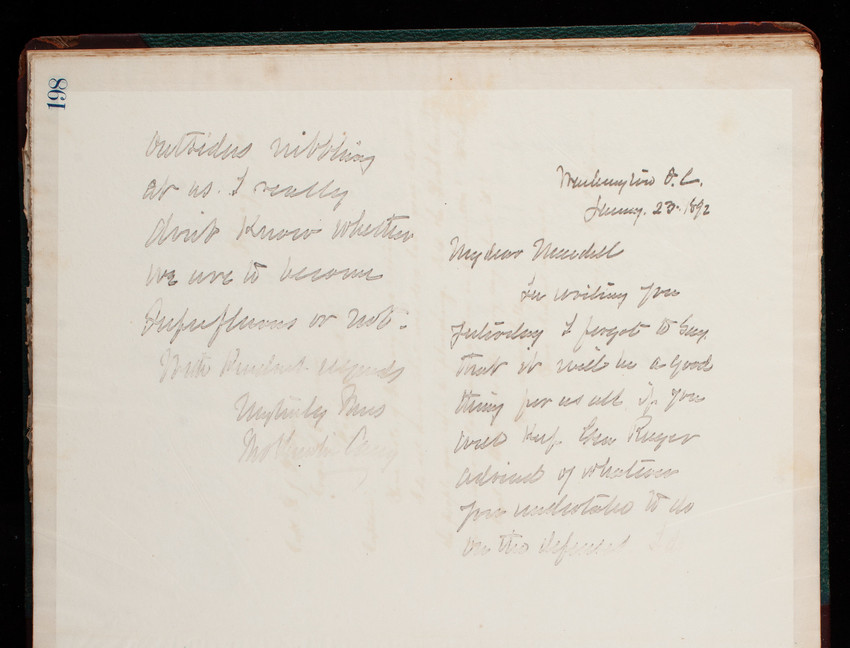 198
outsiders nibbling
at us. I really
dont know whether
we are to become
superfluous or not.
With kindest regards
Very truly Yours
Thos Lincoln Casey
Washington D.C.
January. 23. 1892
My dear Mendell
In writing you
yesterday I forgot to say
that it will be a good
thing for us all if you
will keep Gen Ruger
advised of whatever
you undertake to do
on the defenses